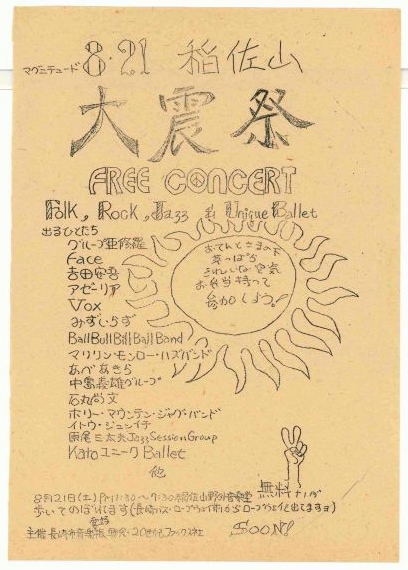 マグニチュード 8.21 稲佐山
大震祭
FREE CONCERT
Folk, Rock, Jazz & Unique Ballet
出るひとたち
グループ亜修羅
Face
吉田安吾
アゼーリア
Vox
みずいらず
BallBullBillBallBand
マリリンモンロー・ハズバンド
あべあきら
中島義雄グループ
石丸尚文
ホリー・マウンテン・ジャグ・バンド
イトウ・ジュンイチ
原尾三太夫JazzSessionGroup
Katoユニーク Ballet
他
おてんとさまの下
菜っぱち
きれいな空気
お弁当持って
参加しよう!
無料
8月21日(土)PM1:30〜7:30稲佐山野外音楽堂
歩いてのぼれます(長崎バス・ロープウェイ前からロープウェイも出てますョ)
主催 長崎市音楽
SOON!